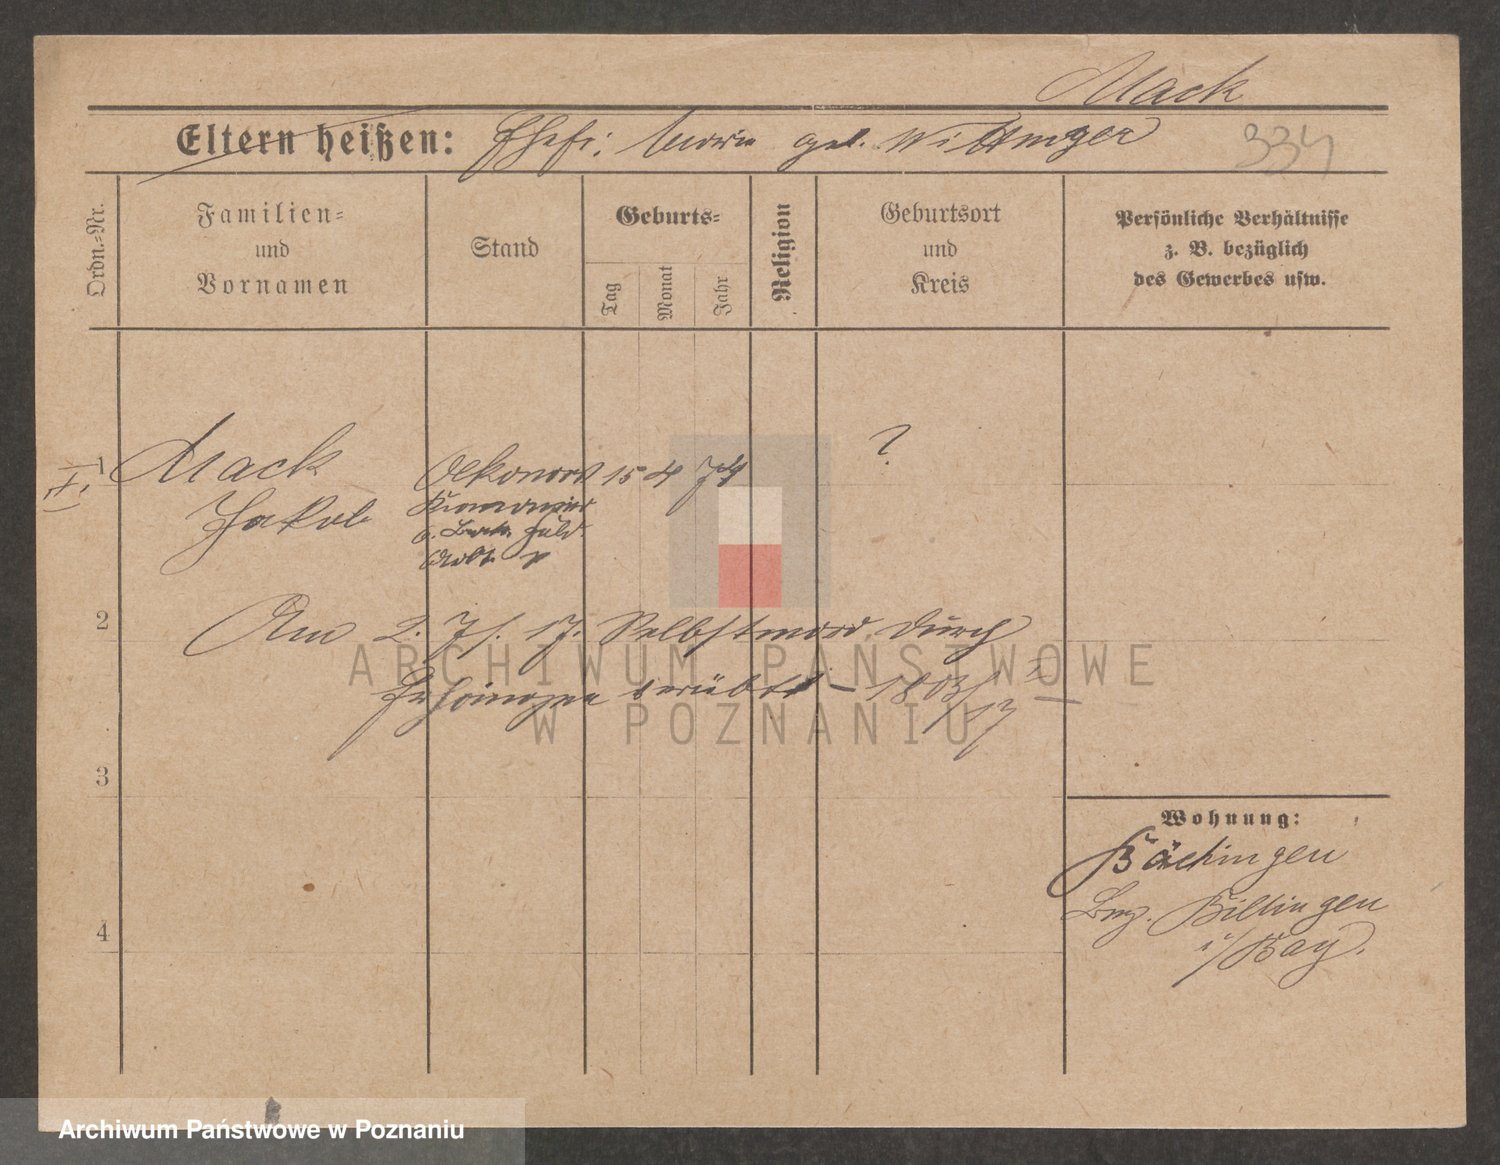 Mack
Eltern heißen: Ehefr: Maria geb. Wittinger 334
Ordn.-Nr.
Familien-
und
Vornamen
Stand
Geburts-
Tag
Monat
Jahr
Religion
Geburtsort
und
Kreis
Persönliche Verhältnisse
z. B. bezüglich
des Gewerbes usw.
1 Mack Oekonom 15 4 74 ?
Jakob
2
Am 2. 7. 17. Selbstmord durch
Erhängen verübt – 1803/17
ARCHIWUM PAŃSTWOWE
W POZNANIU
3
4
Wohnung:
Bächingen
Bez. Dillingen
i/Bay.
Archiwum Państwowe w Poznaniu